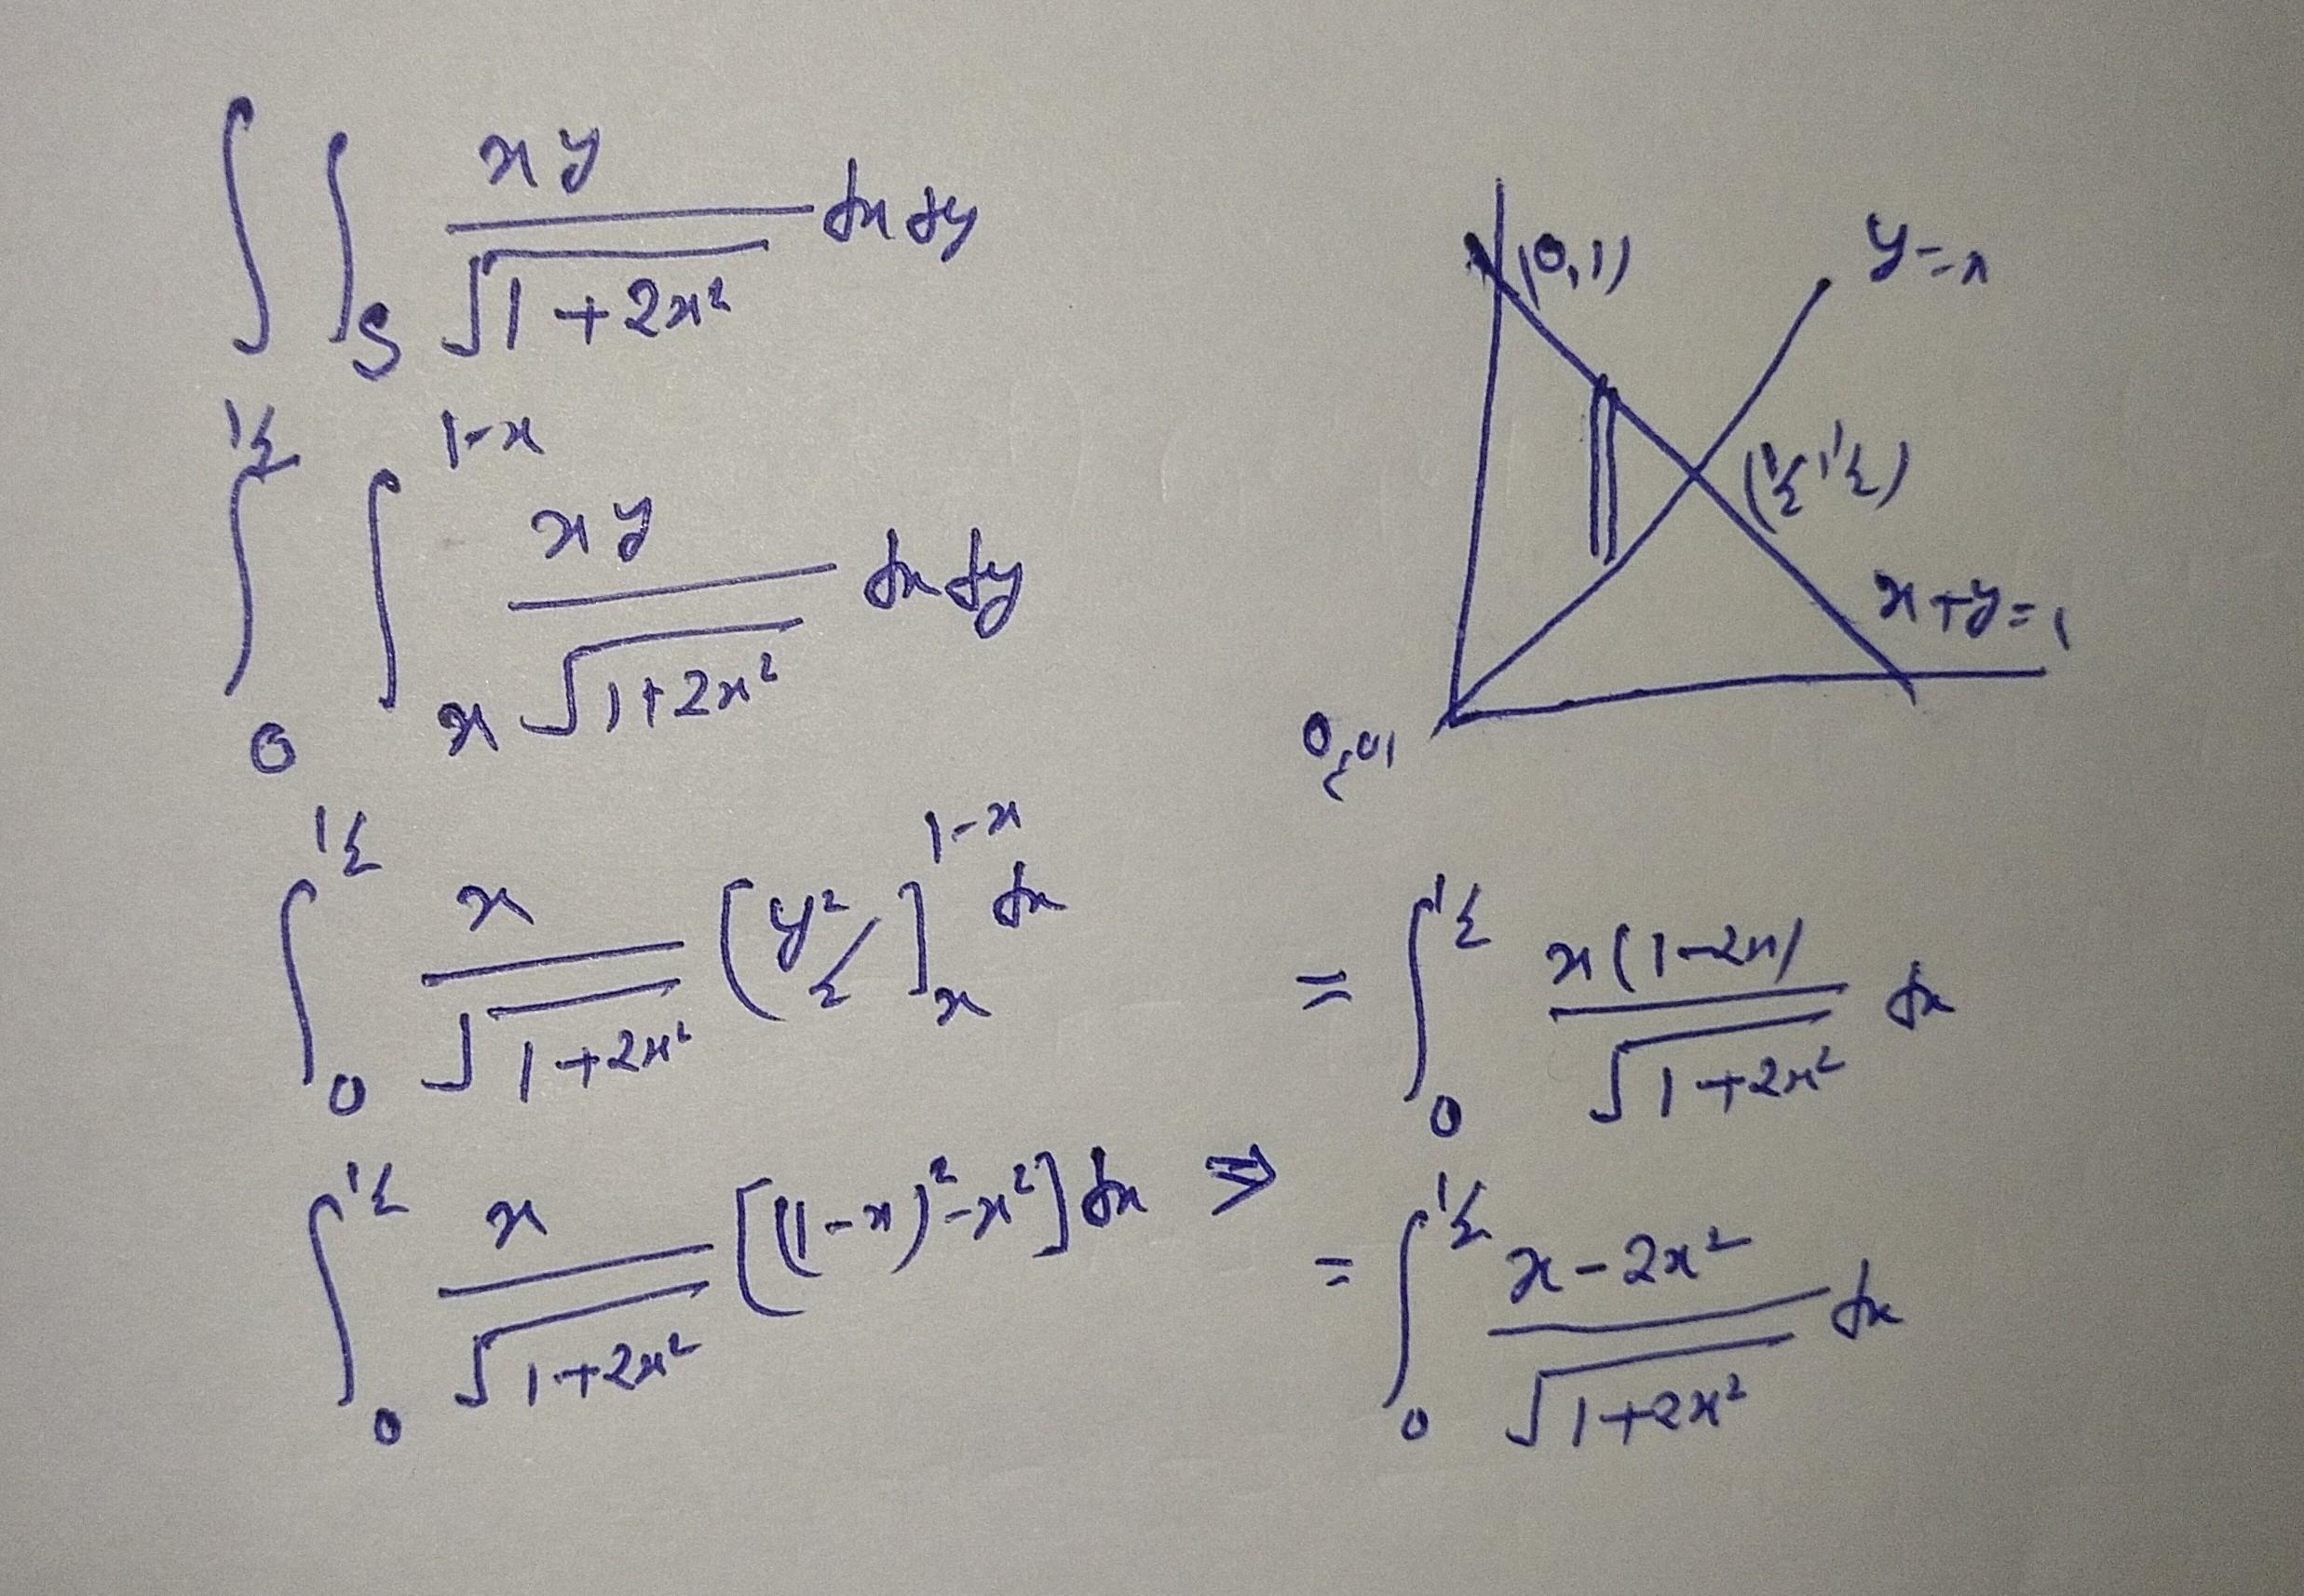 ∫∫_S xy/√(1+2x²) dx dy
∫_0^{1/2} ∫_x^{1-x} xy/√(1+2x²) dx dy
∫_0^{1/2} x/√(1+2x²) [y²/2]_x^{1-x} dx
∫_0^{1/2} x/√(1+2x²) [(1-x)²-x²] dx ⇒
(0,1)
y=x
(1/2, 1/2)
x+y=1
0,0)
= ∫_0^{1/2} x(1-2x)/√(1+2x²) dx
= ∫_0^{1/2} x-2x²/√(1+2x²) dx